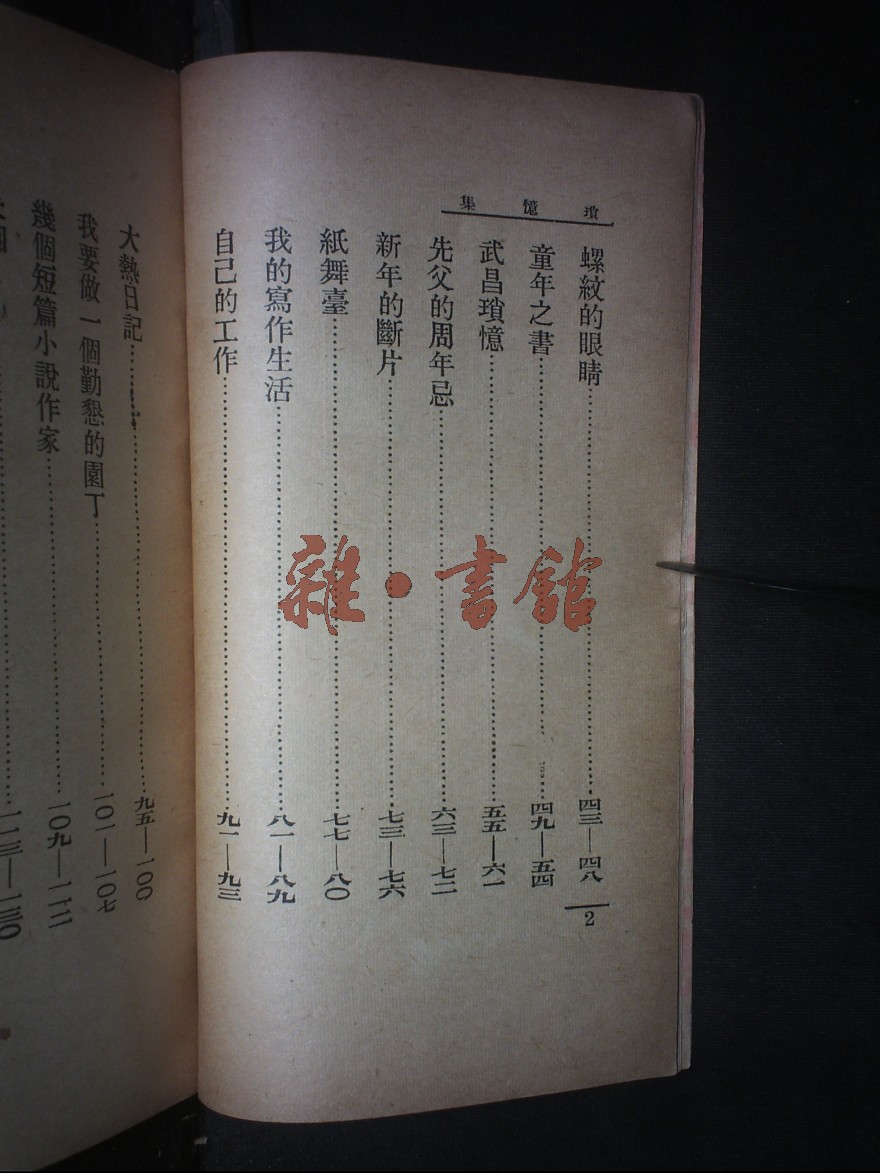 瑣憶集
螺紋的眼睛………四三—四八
童年之書………四九—五四
武昌瑣憶………五五—六一
先父的周年忌………六三—七二
新年的斷片………七三—七六
紙舞臺………七七—八〇
我的寫作生活………八一—八九
自己的工作………九一—九三
2
大熱日記………九五—一〇〇
我要做一個勤懇的園丁………一〇一—一〇七
幾個短篇小說作家………一〇九—一一二
雜·書館